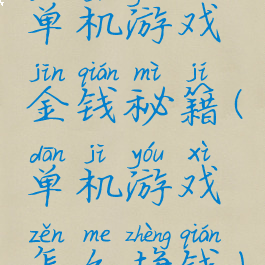 单机游戏
jīn qián mì jí
金钱秘籍(
dān jī yóu xì
单机游戏
zěn me zhèng qián
怎么挣钱)